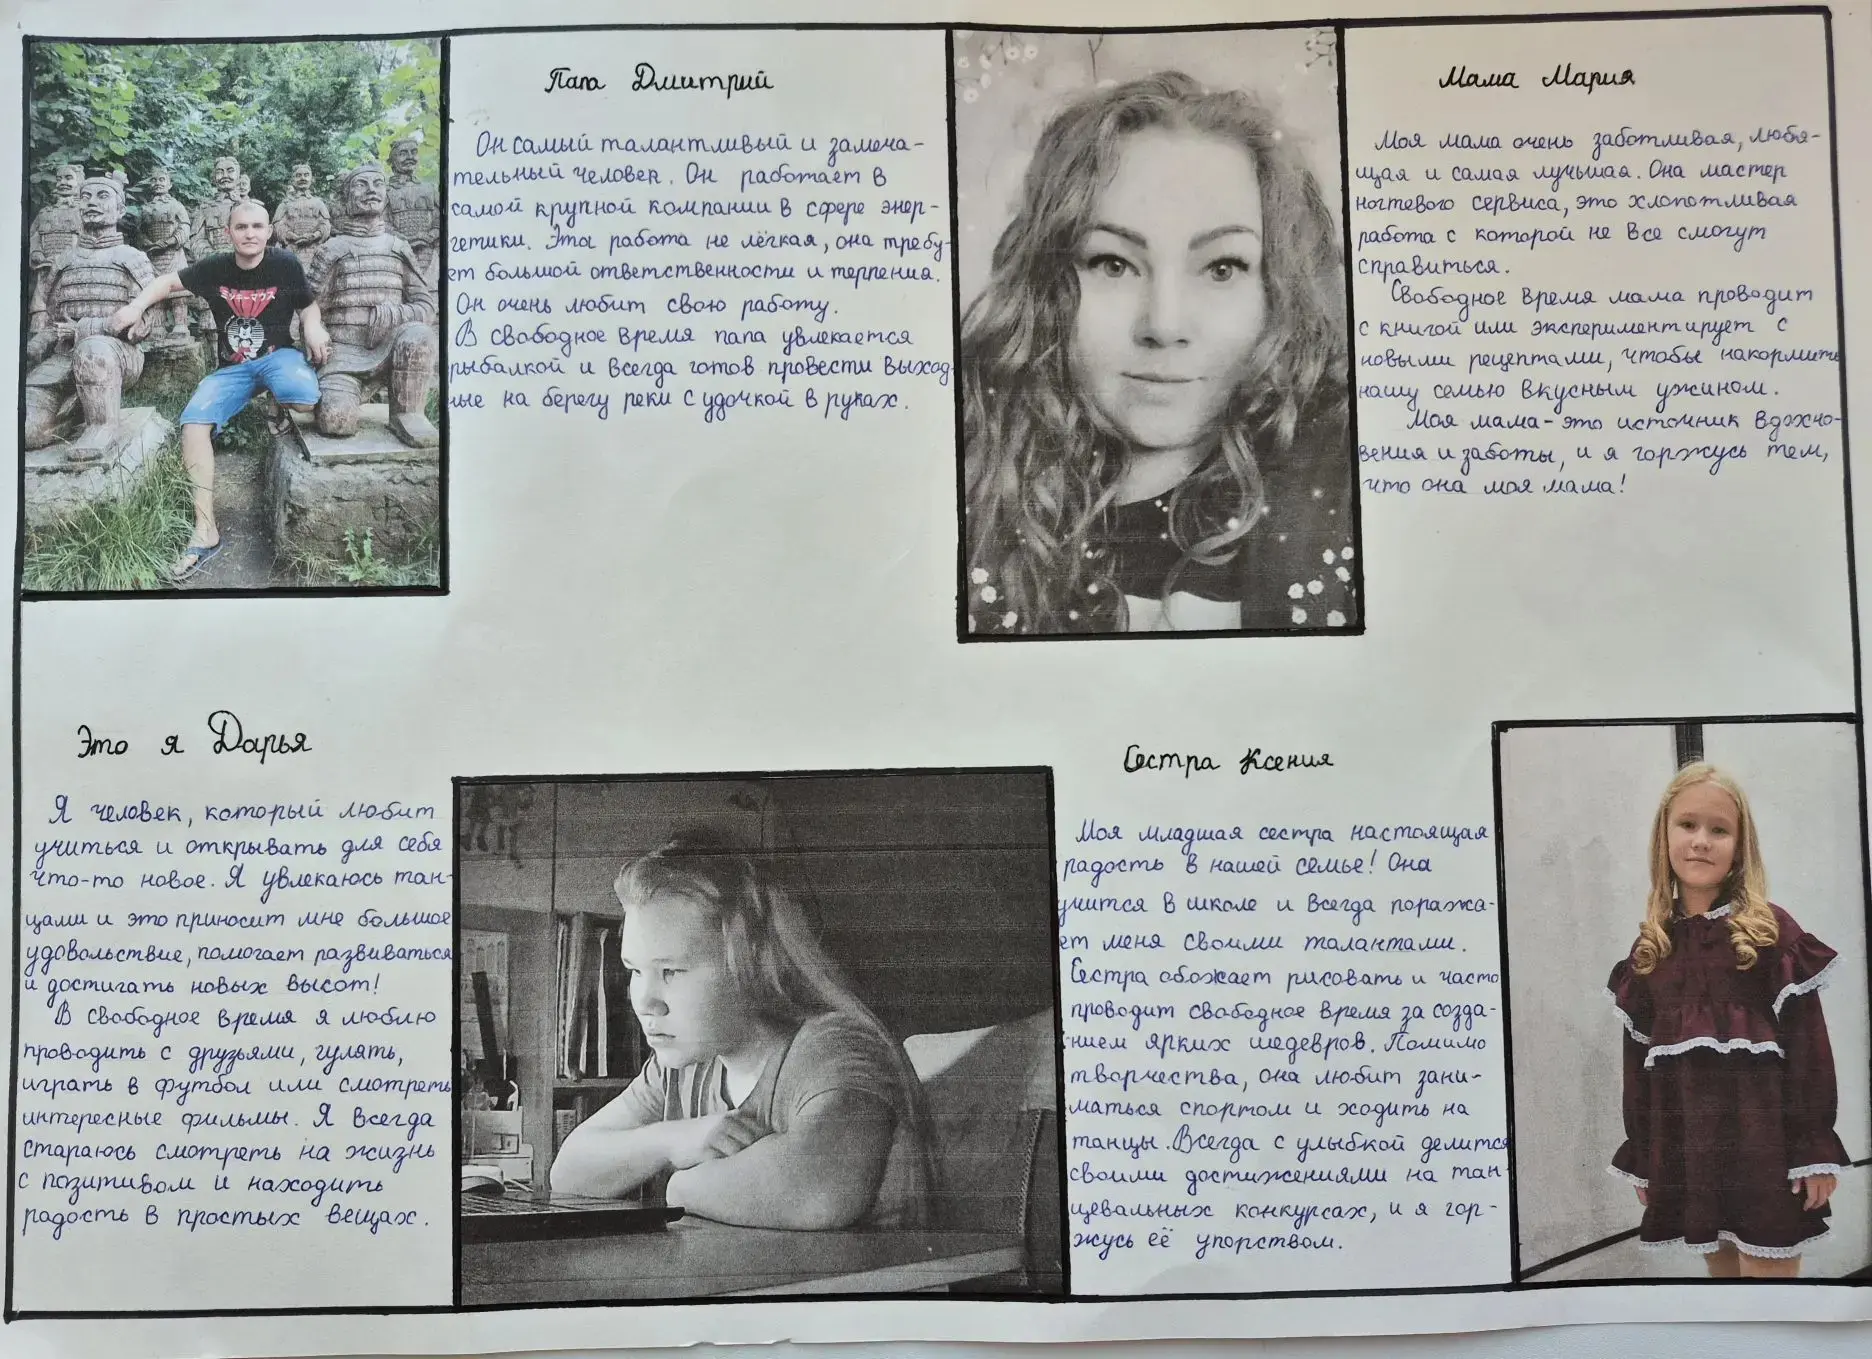 Папа Дмитрий
Он самый талантливый и замеча-
тельный человек. Он работает в
самой крупной компании в сфере энер-
гетики. Эта работа не лёгкая, она требу-
ет большой ответственности и терпения.
Он очень любит свою работу.
В свободное время папа увлекается
рыбалкой и всегда готов провести выход-
ные на берегу реки с удочкой в руках.
ミッキーマウス
Мама Мария
Моя мама очень заботливая, любя-
щая и самая лучшая. Она мастер
ногтевого сервиса, это хлопотливая
работа с которой не все смогут
справиться.
Свободное время мама проводит
с книгой или экспериментирует с
новыми рецептами, чтобы накормить
нашу семью вкусным ужином.
Моя мама - это источник вдохно-
вения и заботы, и я горжусь тем,
что она моя мама!
Это я Дарья
Я человек, который любит
учиться и открывать для себя
что-то новое. Я увлекаюсь тан-
цами и это приносит мне большое
удовольствие, помогает развиваться
и достигать новых высот!
В свободное время я люблю
проводить с друзьями, гулять,
играть в футбол или смотреть
интересные фильмы. Я всегда
стараюсь смотреть на жизнь
с позитивом и находить
радость в простых вещах.
Сестра Ксения
Моя младшая сестра настоящая
радость в нашей семье! Она
учится в школе и всегда поража-
ет меня своими талантами.
Сестра обожает рисовать и часто
проводит свободное время за созда-
нием ярких шедевров. Помимо
творчества, она любит зани-
маться спортом и ходить на
танцы. Всегда с улыбкой делится
своими достижениями на тан-
цевальных конкурсах, и я гор-
жусь её упорством.